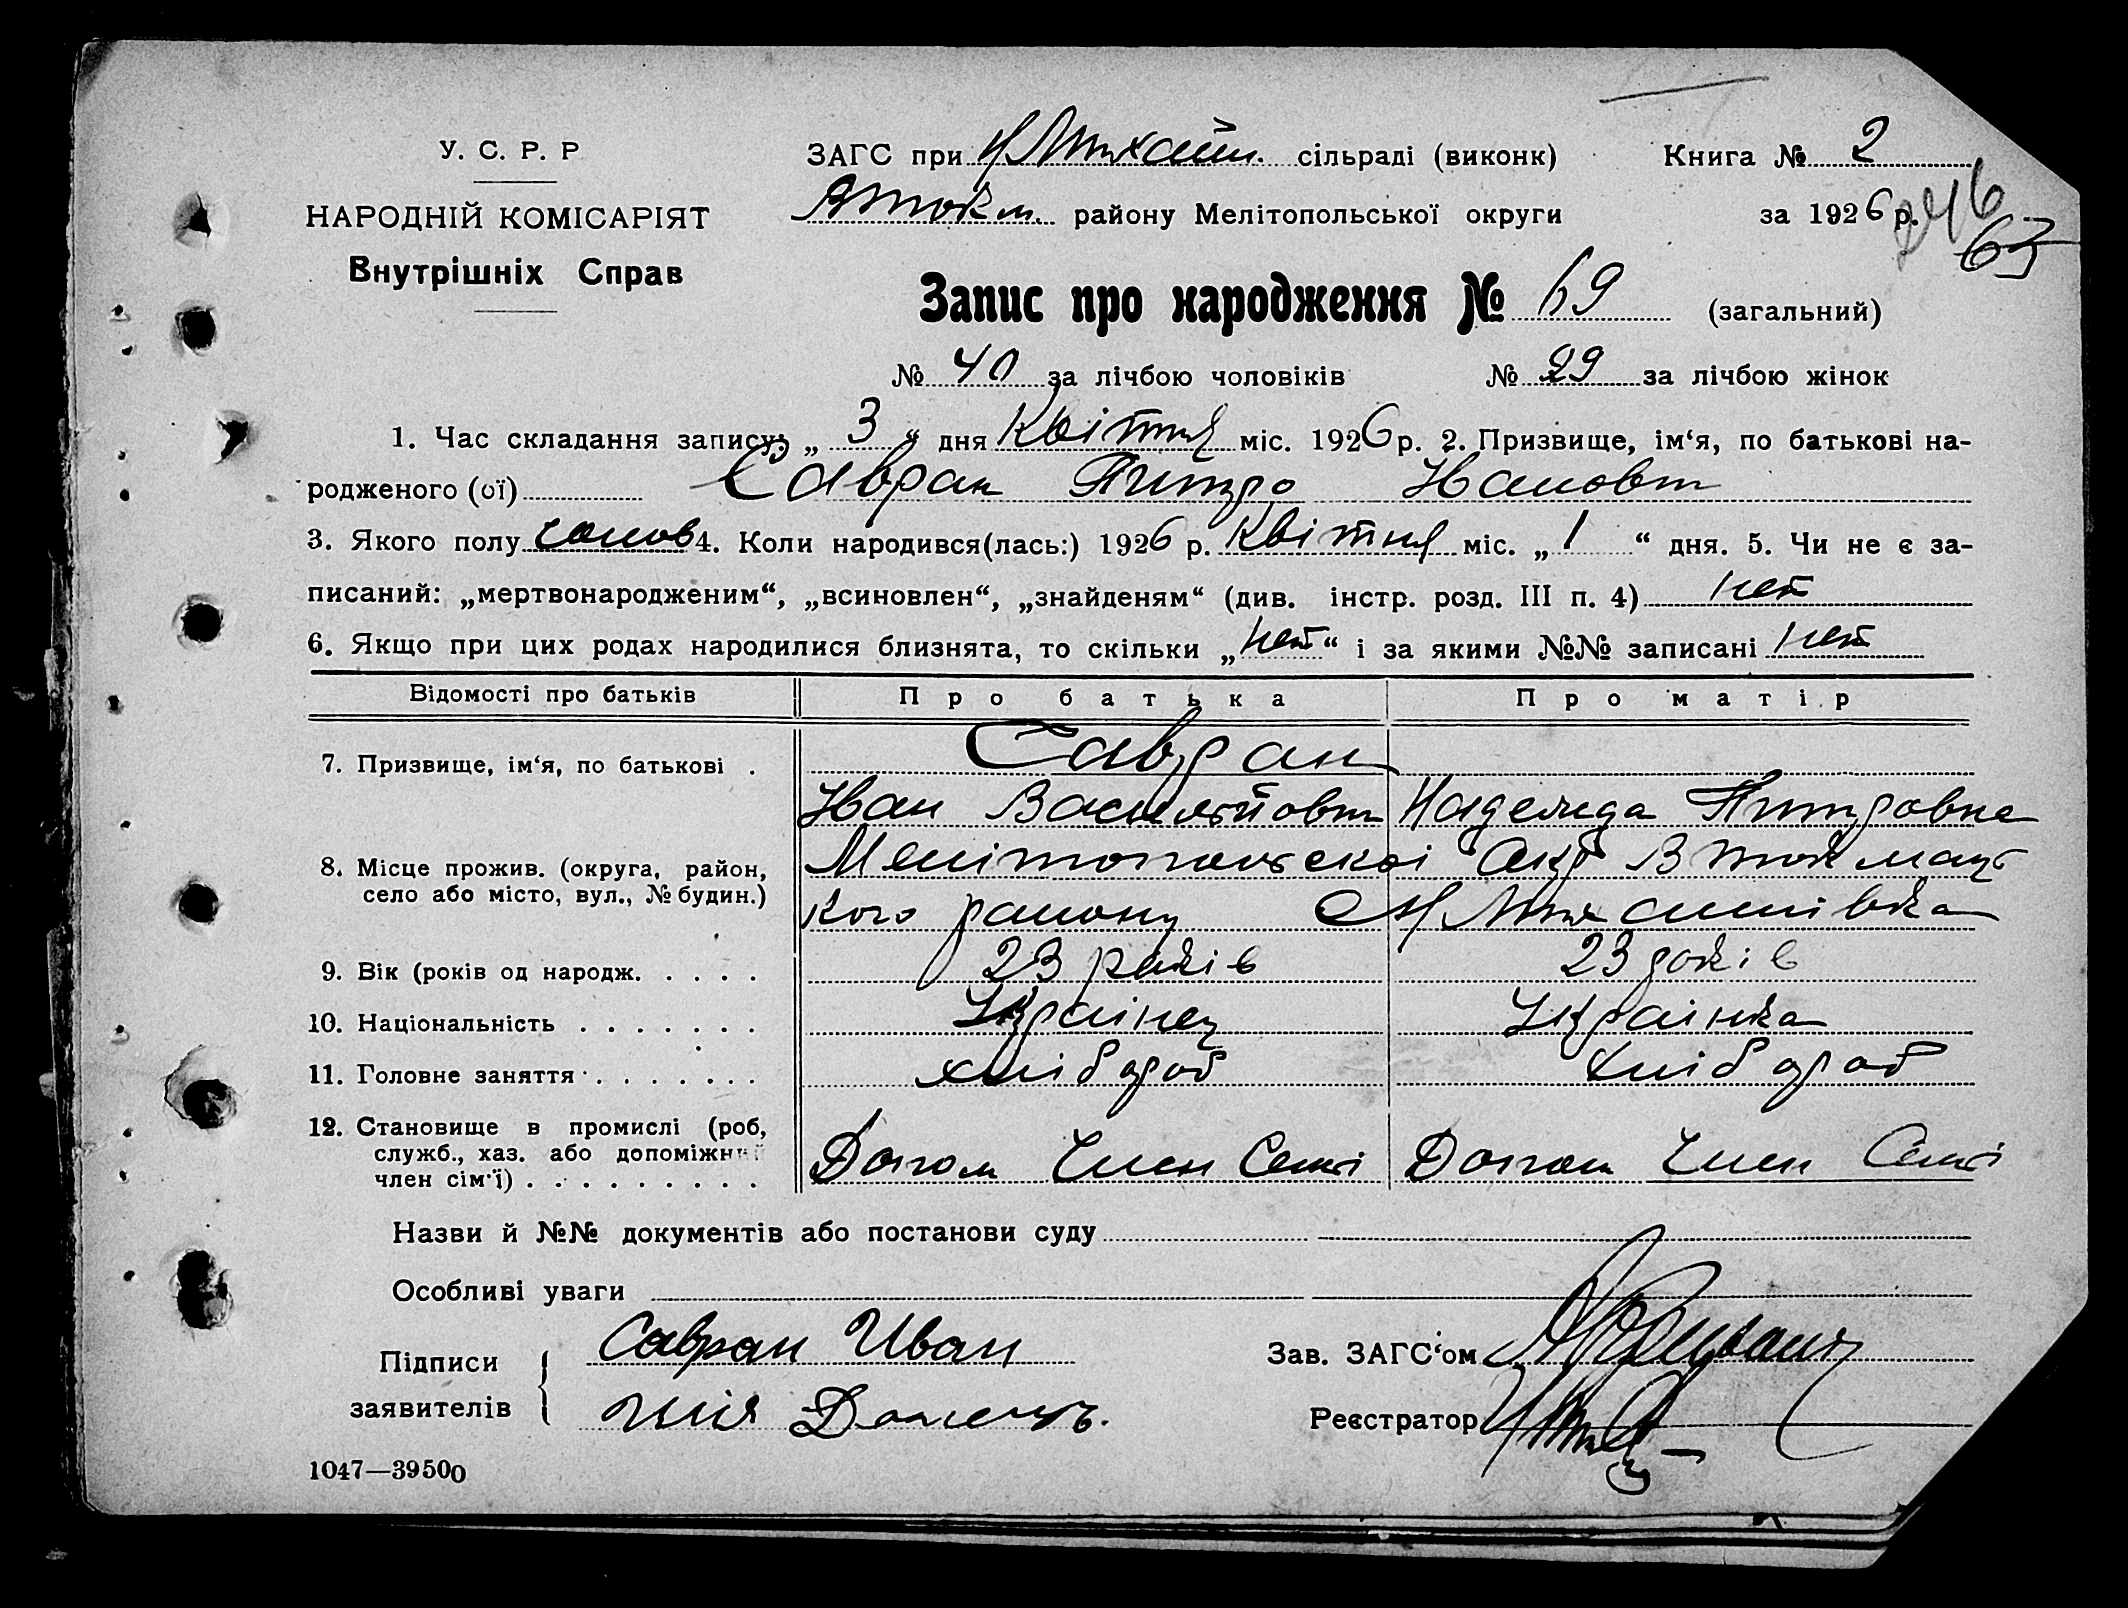 У. С. Р. Р
НАРОДНІЙ КОМІСАРІЯТ
Внутрішніх Справ
ЗАГС при Н Михайл. сільраді (виконк)
Втокм. району Мелітопольської округи
Книга № 2
за 1926 р.
246
63
Запис про народження № 69 (загальний)
№ 40 за лічбою чоловіків № 29 за лічбою жінок
1. Час складання запису: „ 3 “ дня Квітня міс. 1926 р. 2. Призвище, ім‘я, по батькові на-
родженого (ої) Савран Питро Ивановт
3. Якого полу чолов 4. Коли народився(лась:) 1926 р. Квітня міс. „ 1 “ дня. 5. Чи не є за-
писаний: „мертвонародженим“, „всиновлен“, „знайденям“ (див. інстр. розд. III п. 4) нет
6. Якщо при цих родах народилися близнята, то скільки „нет“ і за якими №№ записані нет
Відомості про батьків Про батька Про матір
7. Призвище, ім‘я, по батькові . Савран
Иван Надежда Питровна
8. Місце прожив. (округа, район,
село або місто, вул., № будин.)
Мелітопольскоі Окр В токмацт
кого району Михайлівка
9. Вік (років од народж. . . . . 23 років 23 років
10. Національність . . . . . . . Украінец Украінка
11. Головне заняття . . . . . . . хліб ороб хліб ороб
12. Становище в промислі (роб,
служб., хаз. або допоміжний
член сім‘ї) . . . . . . . . . Допом Член Семі Допом Член Семі
Назви й №№ документів або постанови суду
Особливі уваги
Підписи
заявителів
Савран Иван
Зав. ЗАГС‘ом
Реєстратор
1047—39500